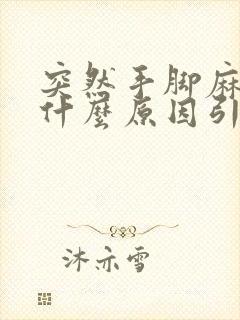 突然手脚麻
什麼原因引
沐亦雪